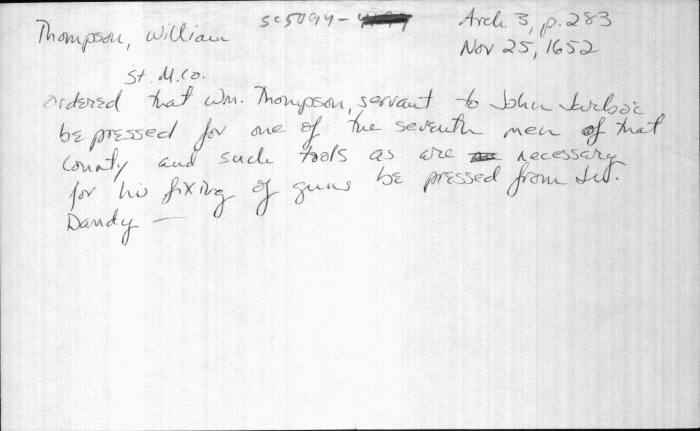 Thompson, William sc5094- Arch. 3, p. 283
Nov 25, 1652
St. M. Co.
ordered that Wm. Thompson, servant to John Jarboe
be pressed for one of the seventh men of that
County and such tools as are necessary
for his fixing of guns be pressed from
Dandy —